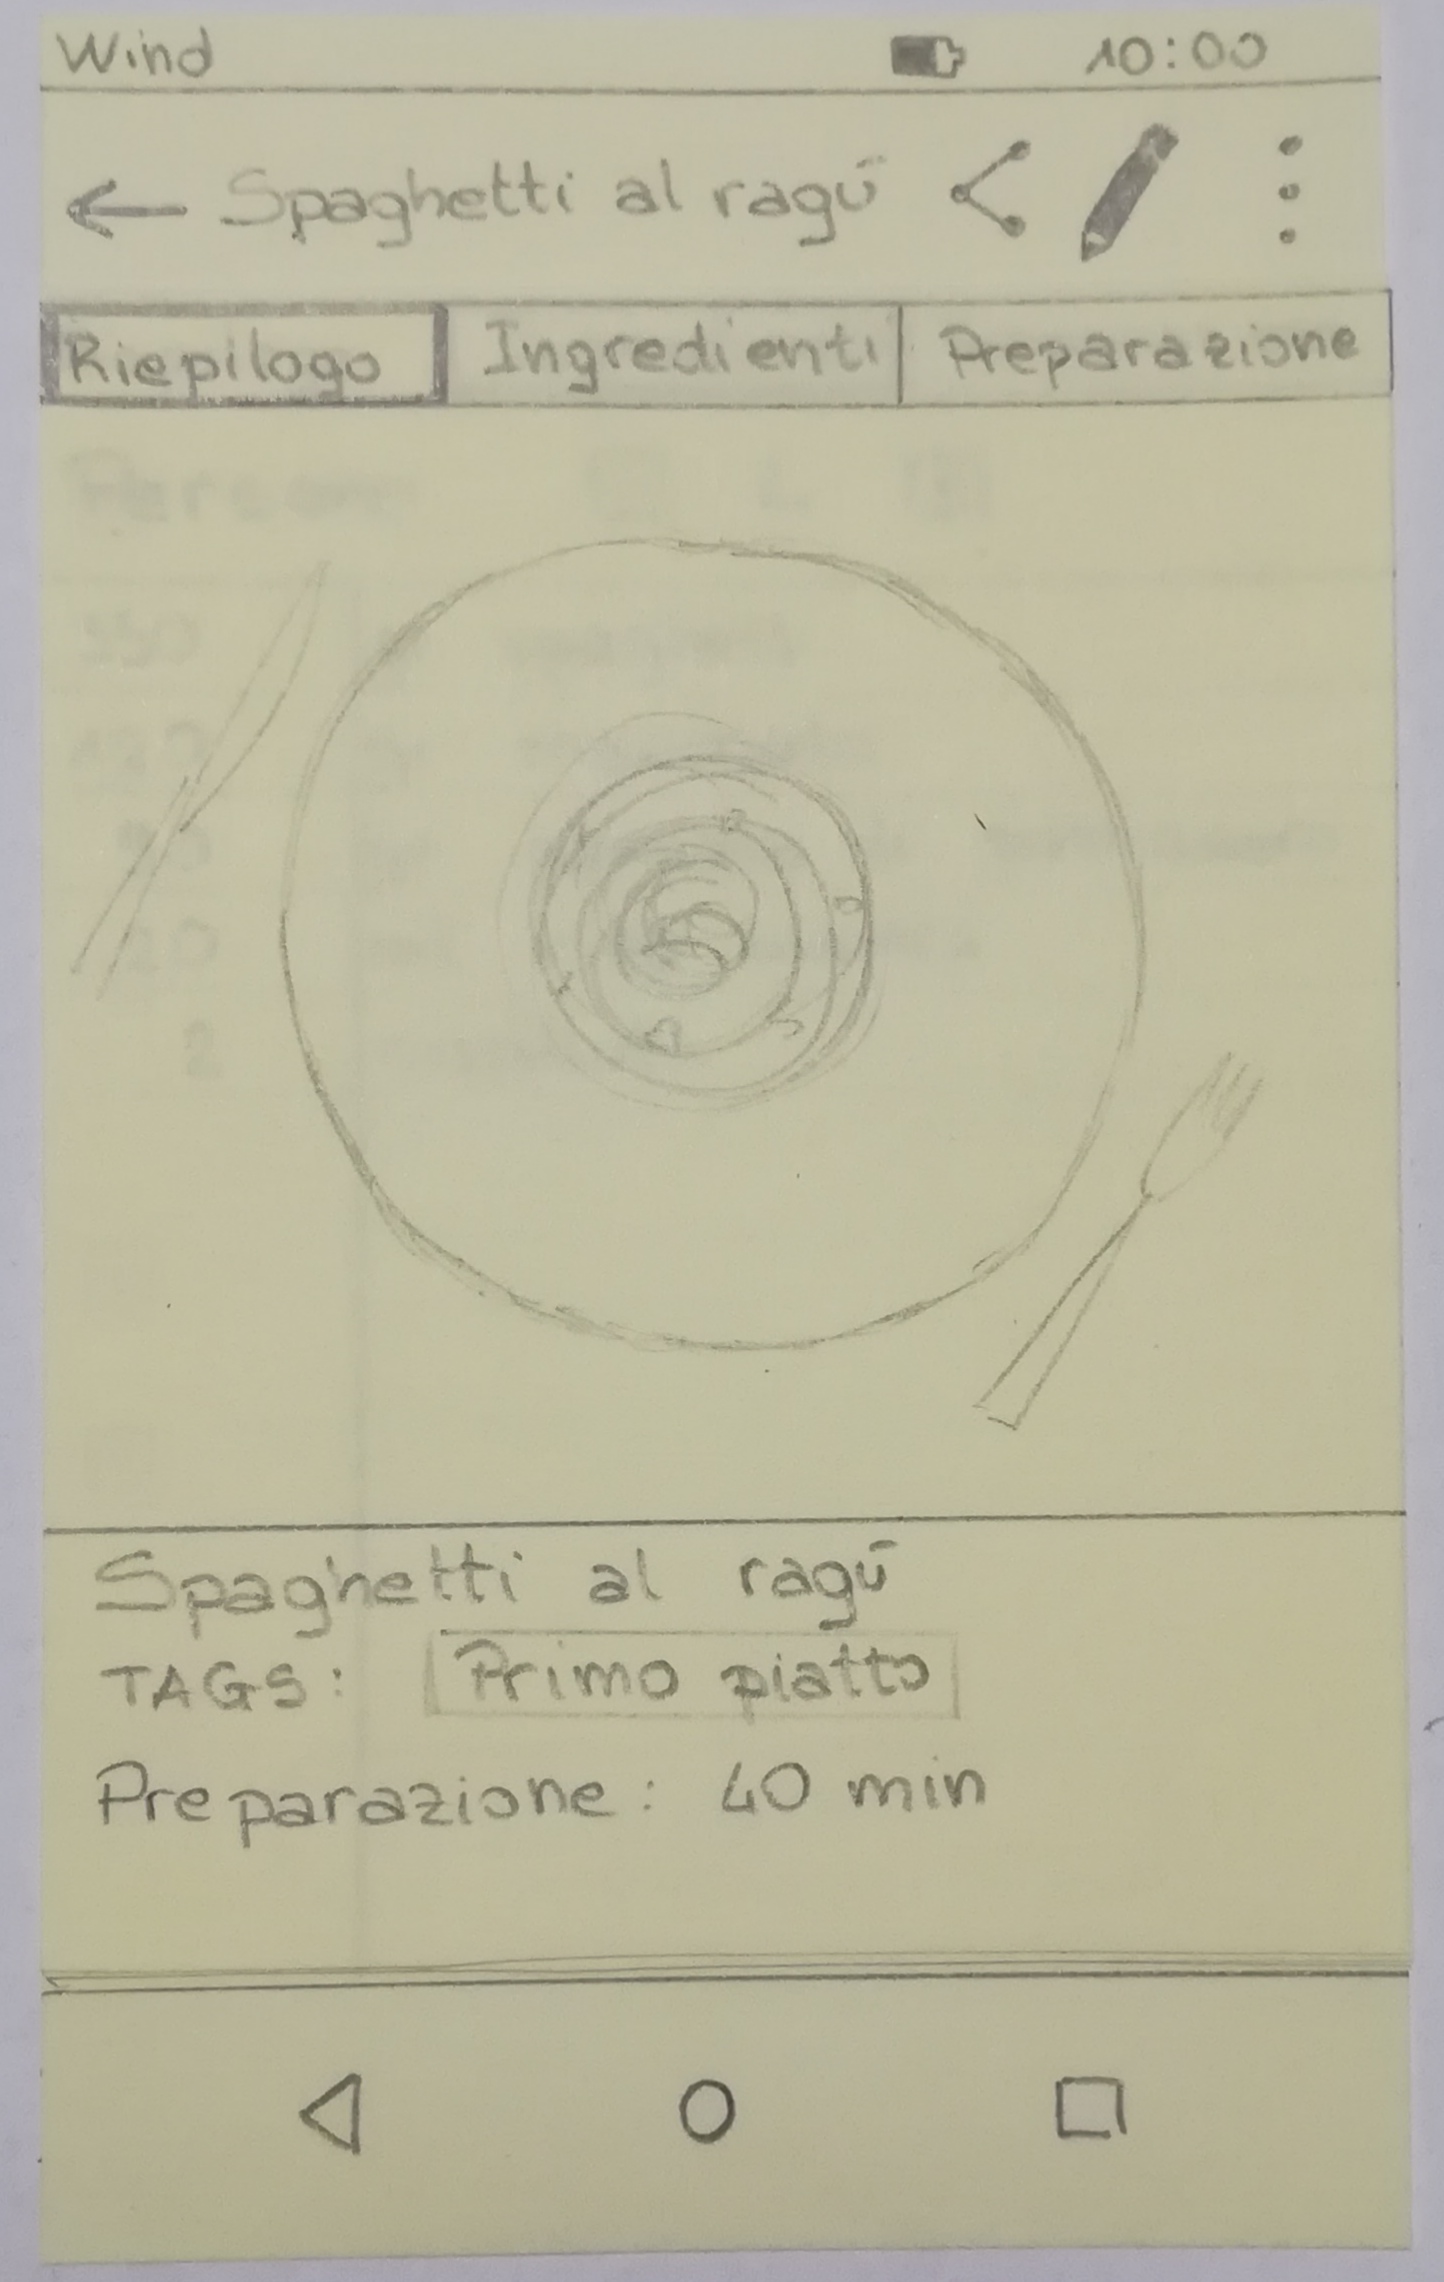 Wind 10:00
Spaghetti al ragū
Riepilogo Ingredienti Preparazione
350
2
Spaghetti al ragū
TAGS: Primo piatto
Preparazione: 40 min